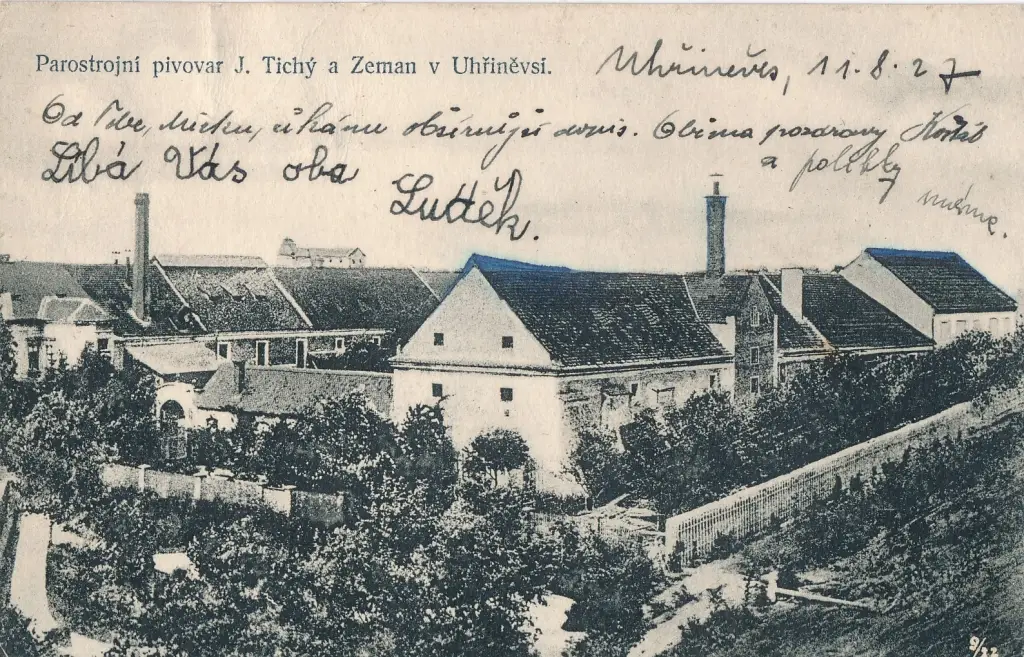 Parostrojní pivovar J. Tichý a Zeman v Uhřiněvsi.
Uhřiněves, 11.8.27
Od Tebe, čekám obšírnější dopis. Oběma pozdravy
a polibky
Líbá Vás oba
Luděk.
9/22